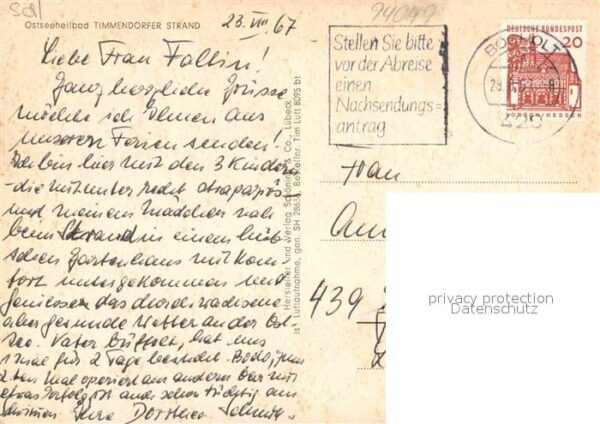 SCH
Ostseeheilbad TIMMENDORFER STRAND
23. VIII 67
Liebe Frau Fallin!
Ganz herzliche Grüsse
möchte ich Ihnen aus
unseren Ferien senden!
Ich bin hier mit den 3 Kindern
- die mitunter recht strapaziös
und meinem Mädchen nah
beim Strand in einem hüb-
schen Gartenhaus mit Kom-
fort untergekommen und
geniessen das
aber gesunde Wetter an der Ost-
see. Vater hat uns
1 mal für 2 Tage besucht. Bodo, zum
2ten Mal operiert am anderen Ohr mit
etwas Erfolg ist auch schon tüchtig am
Ihre Dorothea
Hersteller und Verlag Schöning & Co., Lübeck
Luftaufnahme, gen. SH 28635, Bestellnr. Tim Luft 8095 bt
94049
Stellen Sie bitte
vor der Abreise
einen
Nachsendungs=
antrag
BOCHOLT
DEUTSCHE BUNDESPOST
20
LORSCH/HESSEN
Frau
439
privacy protection
Datenschutz